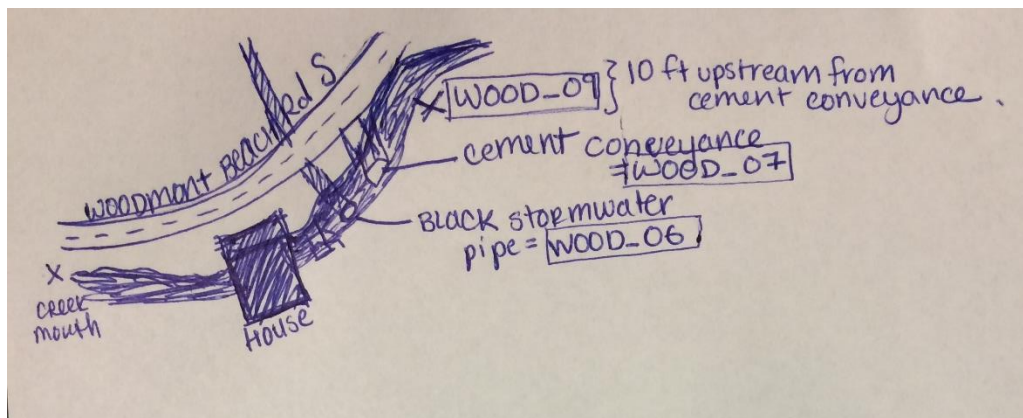 WOODMONT BEACH Rd S
WOOD_09 } 10 ft upstream from
cement conveyance.
cement conveyance
=WOOD_07
BLACK stormwater
pipe = WOOD_06
X
creek
mouth
HOUSE